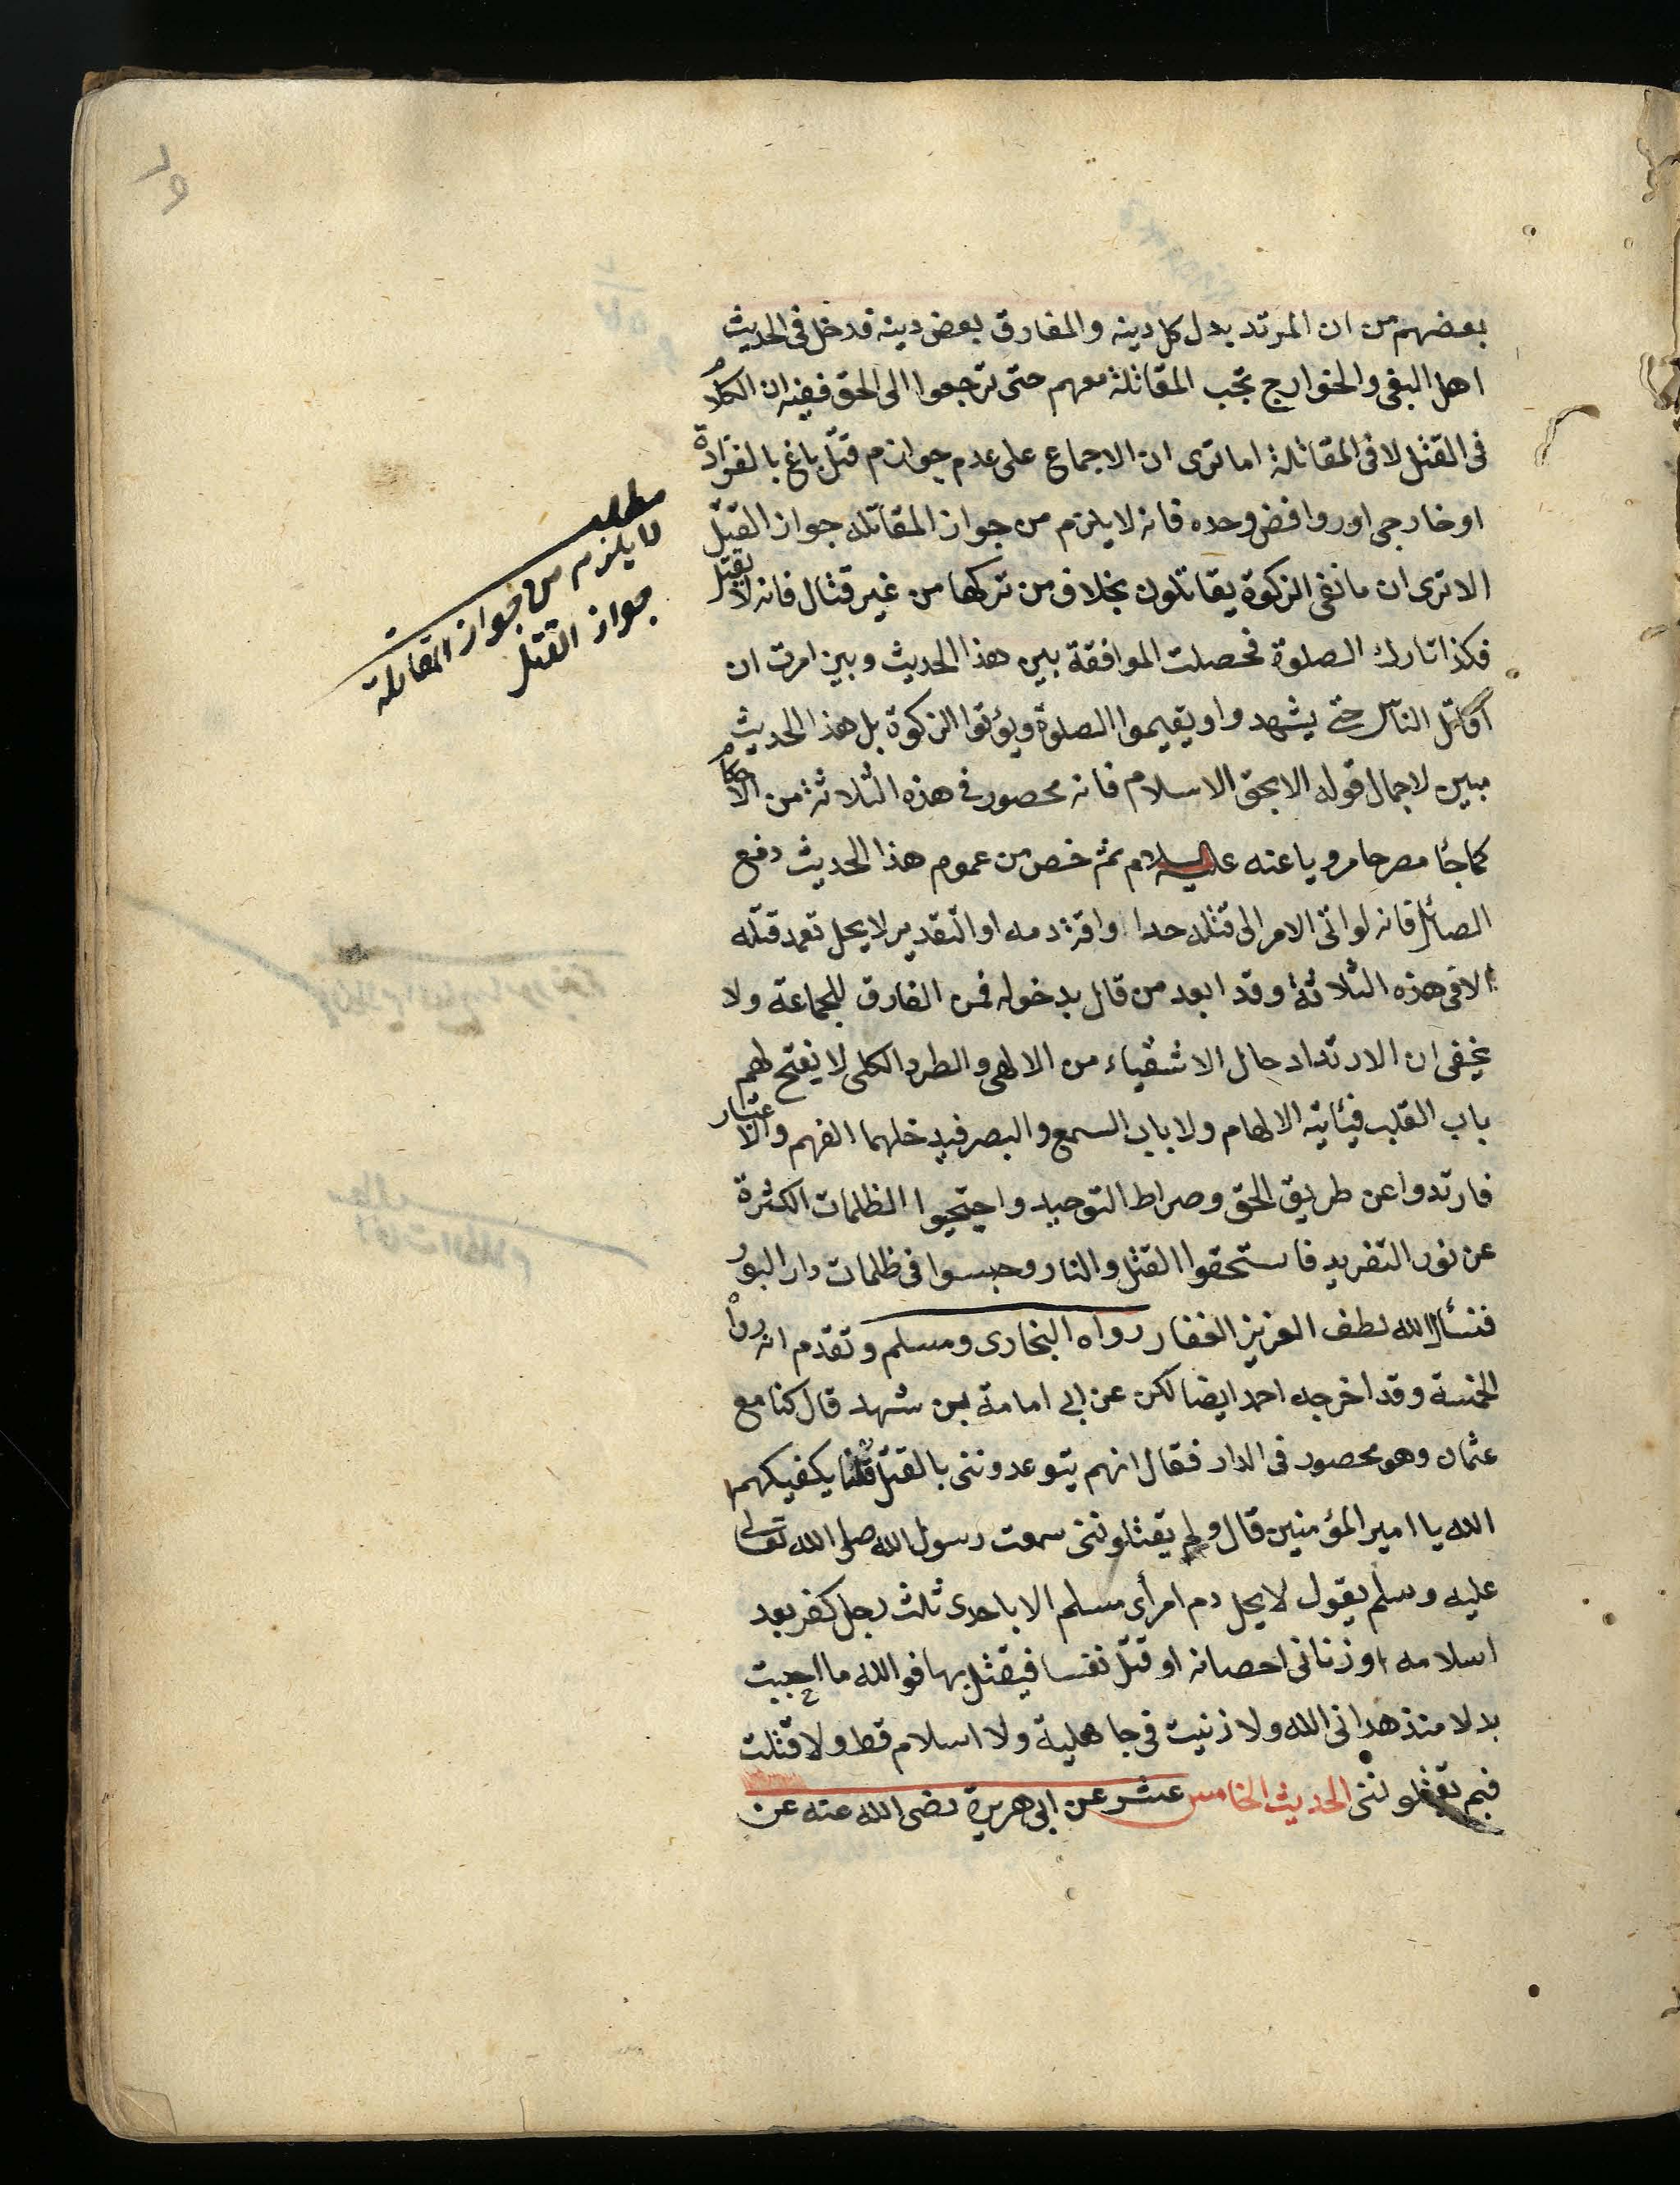 بعضهم من ان المرتد بدل كل دينه والمفارق بعض دينه فدخل فى الحديث
اهل البغى والخوارج تجب المقاتلة معهم حتى ترجعوا الى الحق ففيه ان الكلام
فى القتل لا فى المقاتلة اما ترى ان الاجماع على عدم جواز م قتل باغ بالفرادة
او خارجى اور وافض وحده فانه لا يلزم من جواز المقاتله جواز القتل
الا ترى ان مانفى الزكوة يقاتلون بخلاف من تركها من غير قتال فانه لا يقتل
فكذا تارك الصلوة فحصلت الموافقة بين هذا الحديث وبين امرت ان
اقاتل الناس حتى يشهدوا ويقيموا الصلوة ويؤتوا الزكوة بل هذا الحديث
مبين لاجمال قوله الا بحق الاسلام فانه محصور فى هذه الثلاثة من الاحكام
كما جاء مصرحا مرويا عنه عليه السلام ثم خص من عموم هذا الحديث دفع
الصائل فانه لو اتى الامر الى قتله حدا واقر دمه او التقدير لا يحل تعمد قتله
الا فى هذه الثلاثة وقد ابعد من قال بدخوله فمن الفارق للجماعة ولا
يخفى ان الارتداد حال الاشقياء من الالهى والطرد الكلى لا يفتح لهم
باب القلب فيأتيه الالهام ولا باب السمع والبصر فيدخلهما الفهم والاعتبار
فارتدوا عن طريق الحق وصراط التوحيد واحتجبوا الظلمات الكثرة
عن نور التفريد فاستحقوا القتل والنار وحبسوا فى ظلمات دار البور
فنسأل الله لطف العزيز الغفار رواه البخارى ومسلم وتقدم انه رواه
الخمسة وقد اخرجه احمد ايضا لكن عن ابى امامة بن شهد قال كنا مع
عثمان وهو محصور فى الدار فقال انهم يتوعدوننى بالقتل قلنا يكفيكهم
الله يا امير المؤمنين قال ولم يقتلوننى سمعت رسول الله صلى الله تعالى
عليه وسلم يقول لا يحل دم امرأى مسلم الا باحدى ثلث رجل كفر بعد
اسلامه او زنا فى احصانه او قتل نفسا فيقتل بها فوالله ما احببت
بدلا منذ هدانى الله ولا زنيت فى جاهلية ولا اسلام قط ولا قتلت
فبم يقتلوننى الحديث الخامس عشر عن ابى هريرة رضى الله عنه عن
مطلب
لا يلزم من جواز المقاتلة
جواز القتل